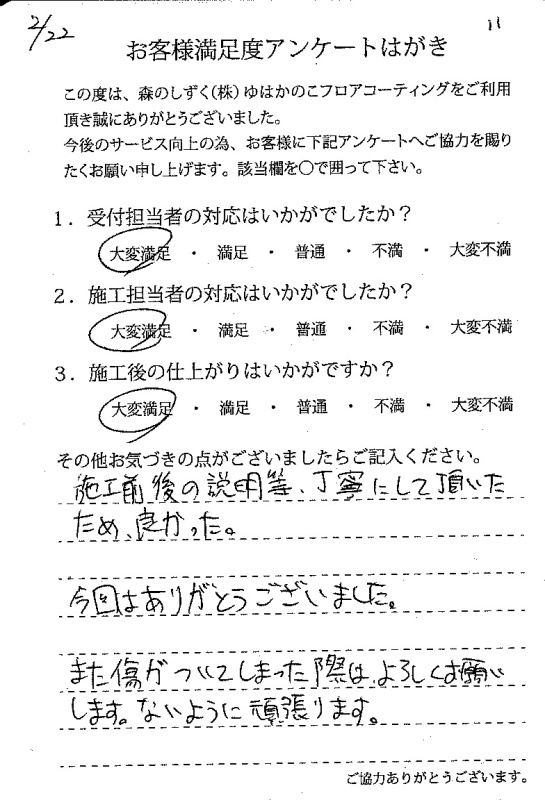 2/22
11
お客様満足度アンケートはがき
この度は、森のしずく(株)ゆはかのこフロアコーティングをご利用
頂き誠にありがとうございました。
今後のサービス向上の為、お客様に下記アンケートへご協力を賜り
たくお願い申し上げます。該当欄を〇で囲って下さい。
1．受付担当者の対応はいかがでしたか？
大変満足 ・ 満足 ・ 普通 ・ 不満 ・ 大変不満
2．施工担当者の対応はいかがでしたか？
大変満足 ・ 満足 ・ 普通 ・ 不満 ・ 大変不満
3．施工後の仕上がりはいかがですか？
大変満足 ・ 満足 ・ 普通 ・ 不満 ・ 大変不満
その他お気づきの点がございましたらご記入ください。
施工前後の説明等、丁寧にして頂いた
ため、良かった。
今回はありがとうございました。
また傷がついてしまった際は、よろしくお願い
します。ないように頑張ります。
ご協力ありがとうございます。